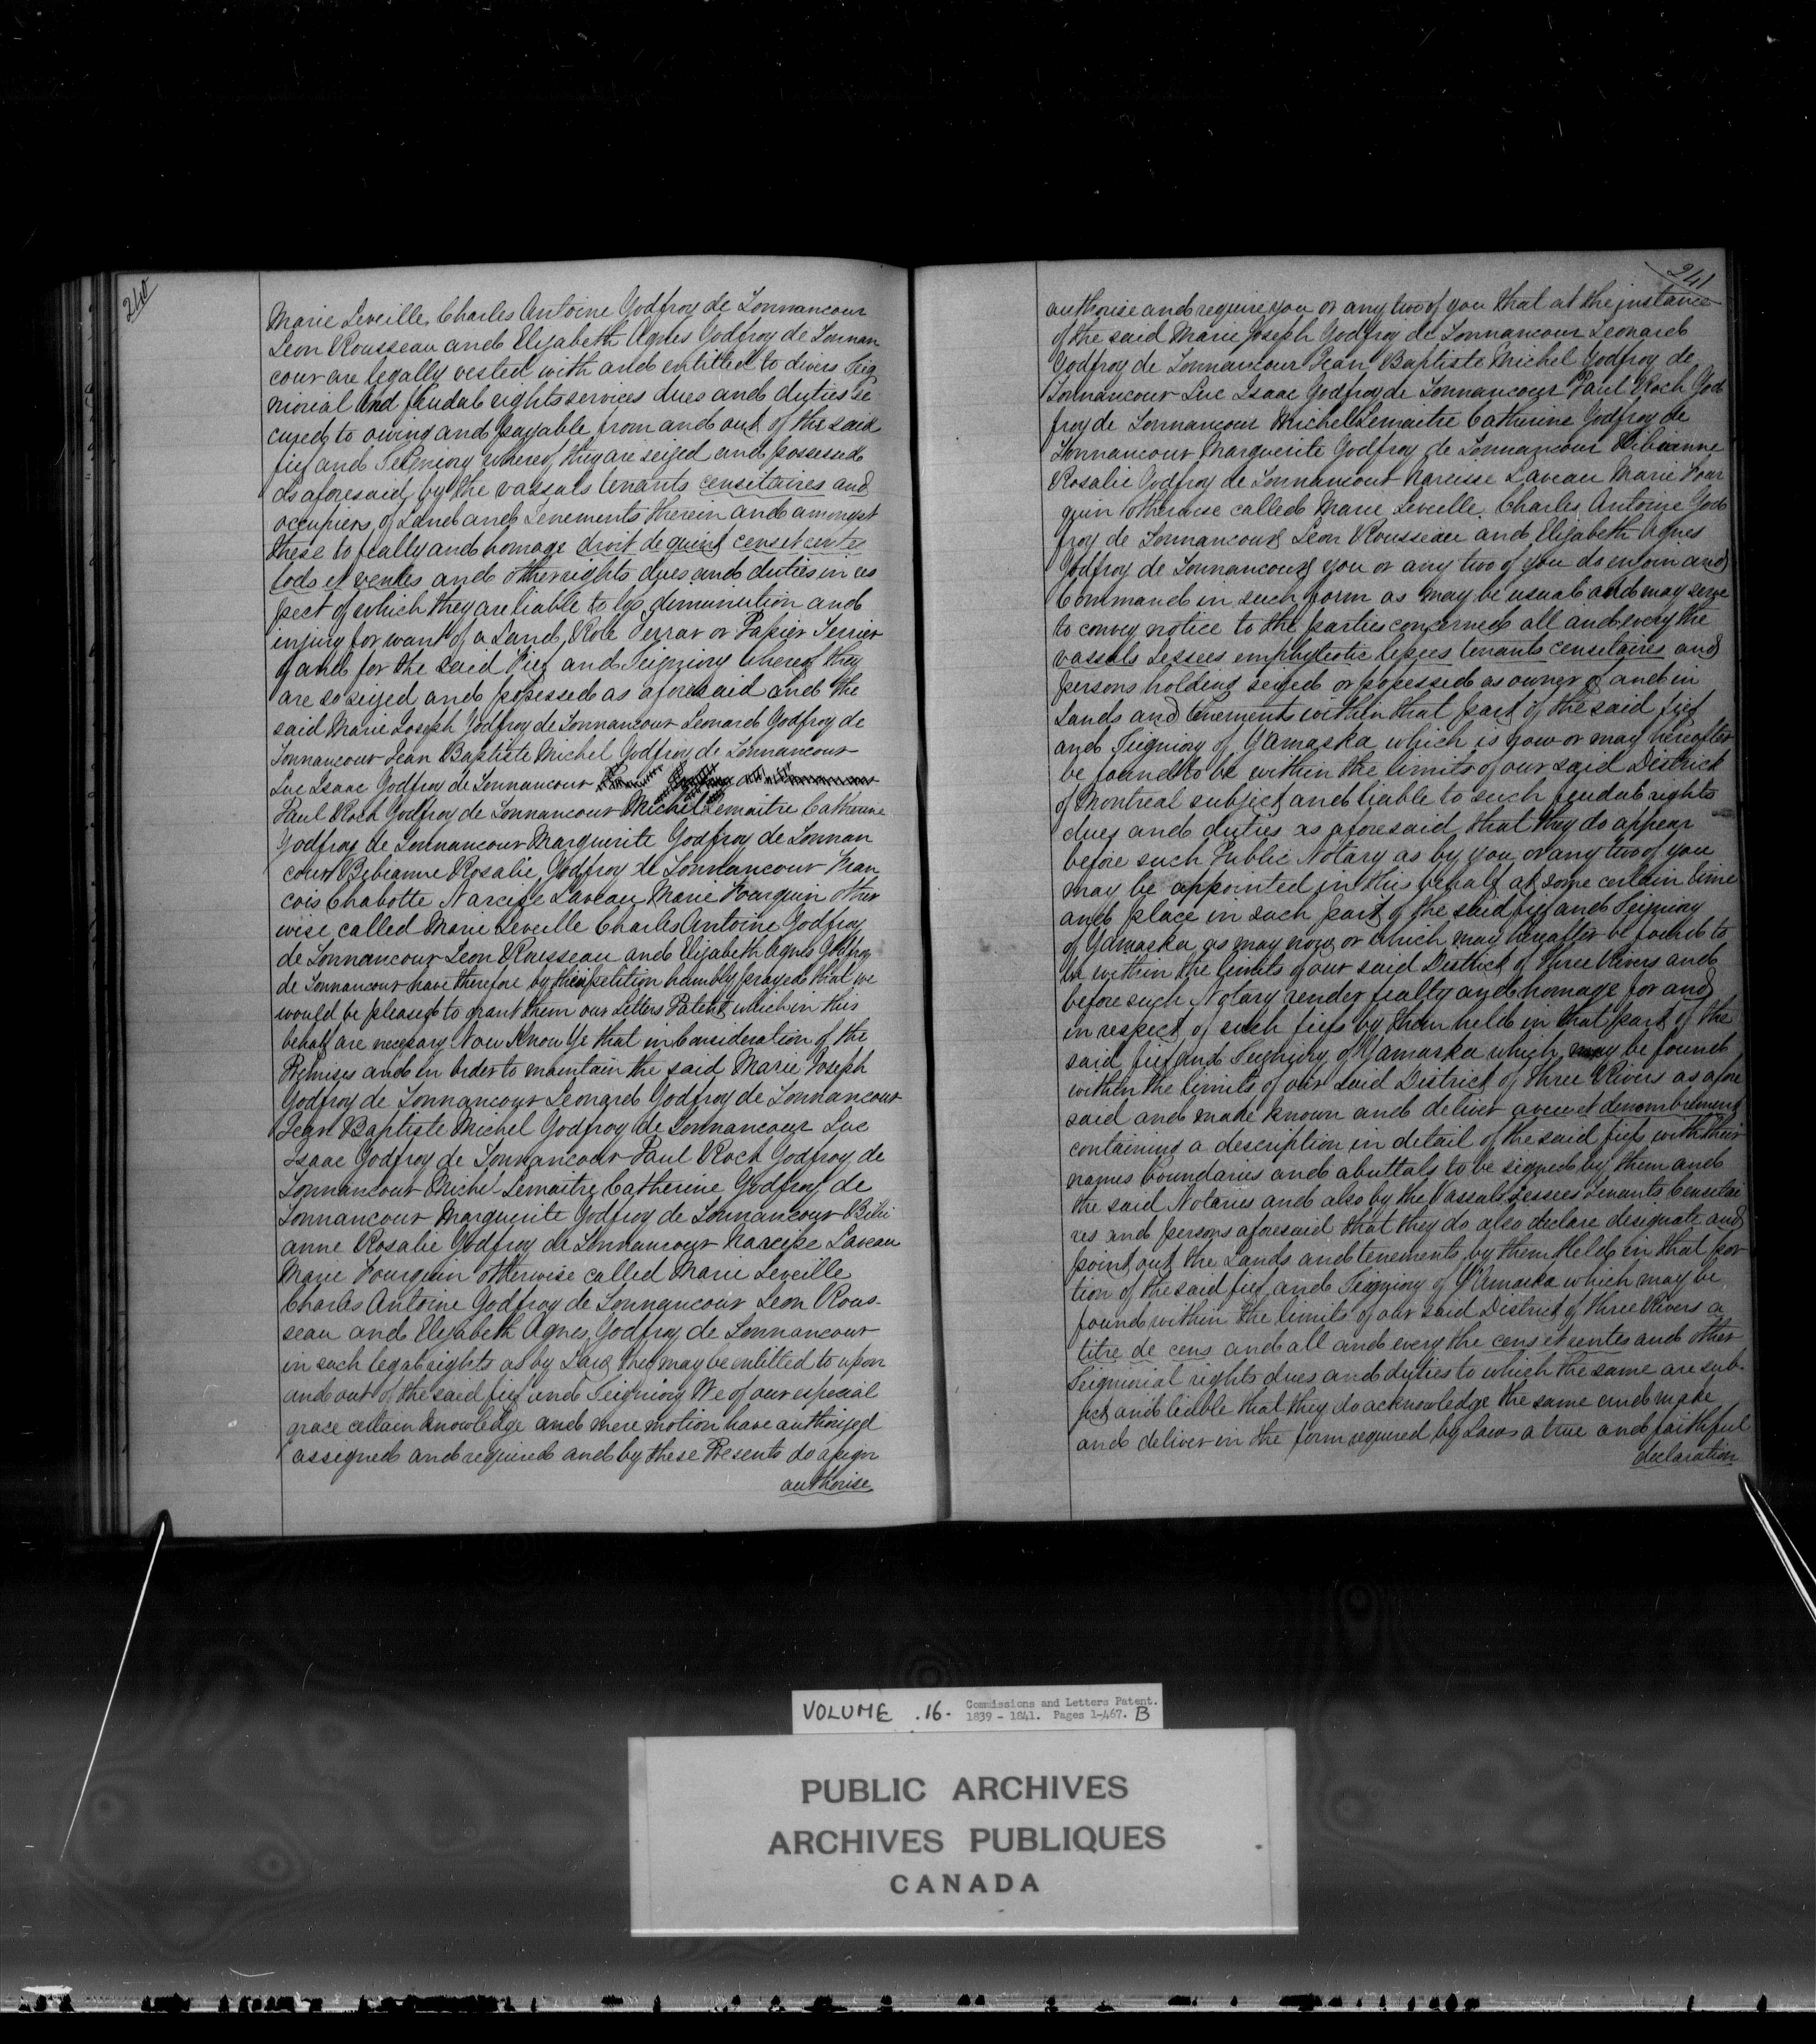 240
Marie Leveille, Charles Antoine Godfroy de Tonnancour
Leon Rousseau and Elizabeth Agnes Godfroy de Tonnan
cour are legally vested with and entitled to divers Seig
niorial and feudal rights services dues and duties se
cured to owing and payable from and out of the said
fief and Seigniory whereof they are seized and possessed
as aforesaid by the vassals tenants censitaires and
occupiers of Land and Tenements therein and amongst
these to fealty and homage droit de quint cens et rentes
lods et ventes and other rights dues and duties in res
pect of which they are liable to loss demunution and
injury for want of a Land Role Terrar or Papier Terrier
of and for the said Fief and Seigniory whereof they
are so seized and possessed as aforesaid and the
said Marie Joseph Godfroy de Tonnancour Leonard Godfroy de
Tonnancour Jean Baptiste Michel Godfroy de Tonnancour
Luc Isaac Godfroy de Tonnancour
Paul Roch Godfroy de Tonnancour Michel Lemaitre Catherine
Godfroy de Tonnancour Marguerite Godfroy de Tonnan
cour Bibianne Rosalie Godfroy de Tonnancour Fran
cois Chabotte Narcisse Laveau Marie Fourquin other
wise called Marie Leveille Charles Antoine Godfroy
de Tonnancour Leon Rousseau and Elizabeth Agnes Godfroy
de Tonnancour have therefore by their petition humbly prayed that we
would be pleased to grant them our Letters Patent which in this
behalf are necessary Now Know Ye that in Consideration of the
Premises and in order to maintain the said Marie Joseph
Godfroy de Tonnancour Leonard Godfroy de Tonnancour
Jean Baptiste Michel Godfroy de Tonnancour Luc
Isaac Godfroy de Tonnancour Paul Roch Godfroy de
Tonnancour Michel Lemaitre Catherine Godfroy de
Tonnancour Marguerite Godfroy de Tonnancour Bibi
anne Rosalie Godfroy de Tonnancour Narcisse Laveau
Marie Fourquin otherwise called Marie Leveille
Charles Antoine Godfroy de Tonnancour Leon Rous-
seau and Elizabeth Agnes Godfroy de Tonnancour
in such legal rights as by Law they may be entitled to upon
and out of the said fief and Seigniory We of our especial
grace certain knowledge and mere motion have authorized
assigned and required and by these Presents do assign
authorise
241
authorise and require you or any two of you that at the instance
of the said Marie Joseph Godfroy de Tonnancour Leonard
Godfroy de Tonnancour Jean Baptiste Michel Godfroy de
Tonnancour Luc Isaac Godfroy de Tonnancour Paul Roch God
froy de Tonnancour Michel Lemaitre Catherine Godfroy de
Tonnancour Marguerite Godfroy de Tonnancour Bibianne
Rosalie Godfroy de Tonnancour Narcisse Laveau Marie Four
quin otherwise called Marie Leveille, Charles Antoine God
froy de Tonnancour Leon Rousseau and Elizabeth Agnes
Godfroy de Tonnancour you or any two of you do enjoin and
Command in such form as may be usual and may serve
to convey notice to the parties concerned all and every the
vassals Lessees emphyteotic lessees tenants censitaires and
persons holding seized or possessed as owner of and in
Lands and tenements within that part of the said fief
and Seigniory of Yamaska which is now or may hereafter
be found to be within the limits of our said District
of Montreal subject and liable to such feudal rights
dues and duties as aforesaid that they do appear
before such Public Notary as by you or any two of you
may be appointed in this behalf at some certain time
and place in such part of the said fief and Seigniory
of Yamaska as may now or which may hereafter be found to
be within the limits of our said District of Three Rivers and
before such Notary render fealty and homage for and
in respect of such fiefs by them held in that part of the
said fief and Seigniory of Yamaska which may be found
within the limits of our said District of Three Rivers as afore
said and make known and deliver aveu et denombrement
containing a description in detail of the said fiefs with their
names boundaries and abuttals to be signed by them and
the said Notaries and also by the Vassals Lessees Tenants Censitai
res and persons aforesaid that they do also declare designate and
point out the Lands and tenements by them Held in that por
tion of the said fief and Seigniory of Yamaska which may be
found within the limits of our said District of Three Rivers a
titre de cens and all and every the cens et rentes and other
Seigniorial rights dues and duties to which the same are sub-
ject and liable that they do acknowledge the same and make
and deliver in the form required by Law a true and faithful
declaration
VOLUME .16. Commissions and Letters Patent.
1839 - 1841. Pages 1-467. B
PUBLIC ARCHIVES
ARCHIVES PUBLIQUES
CANADA